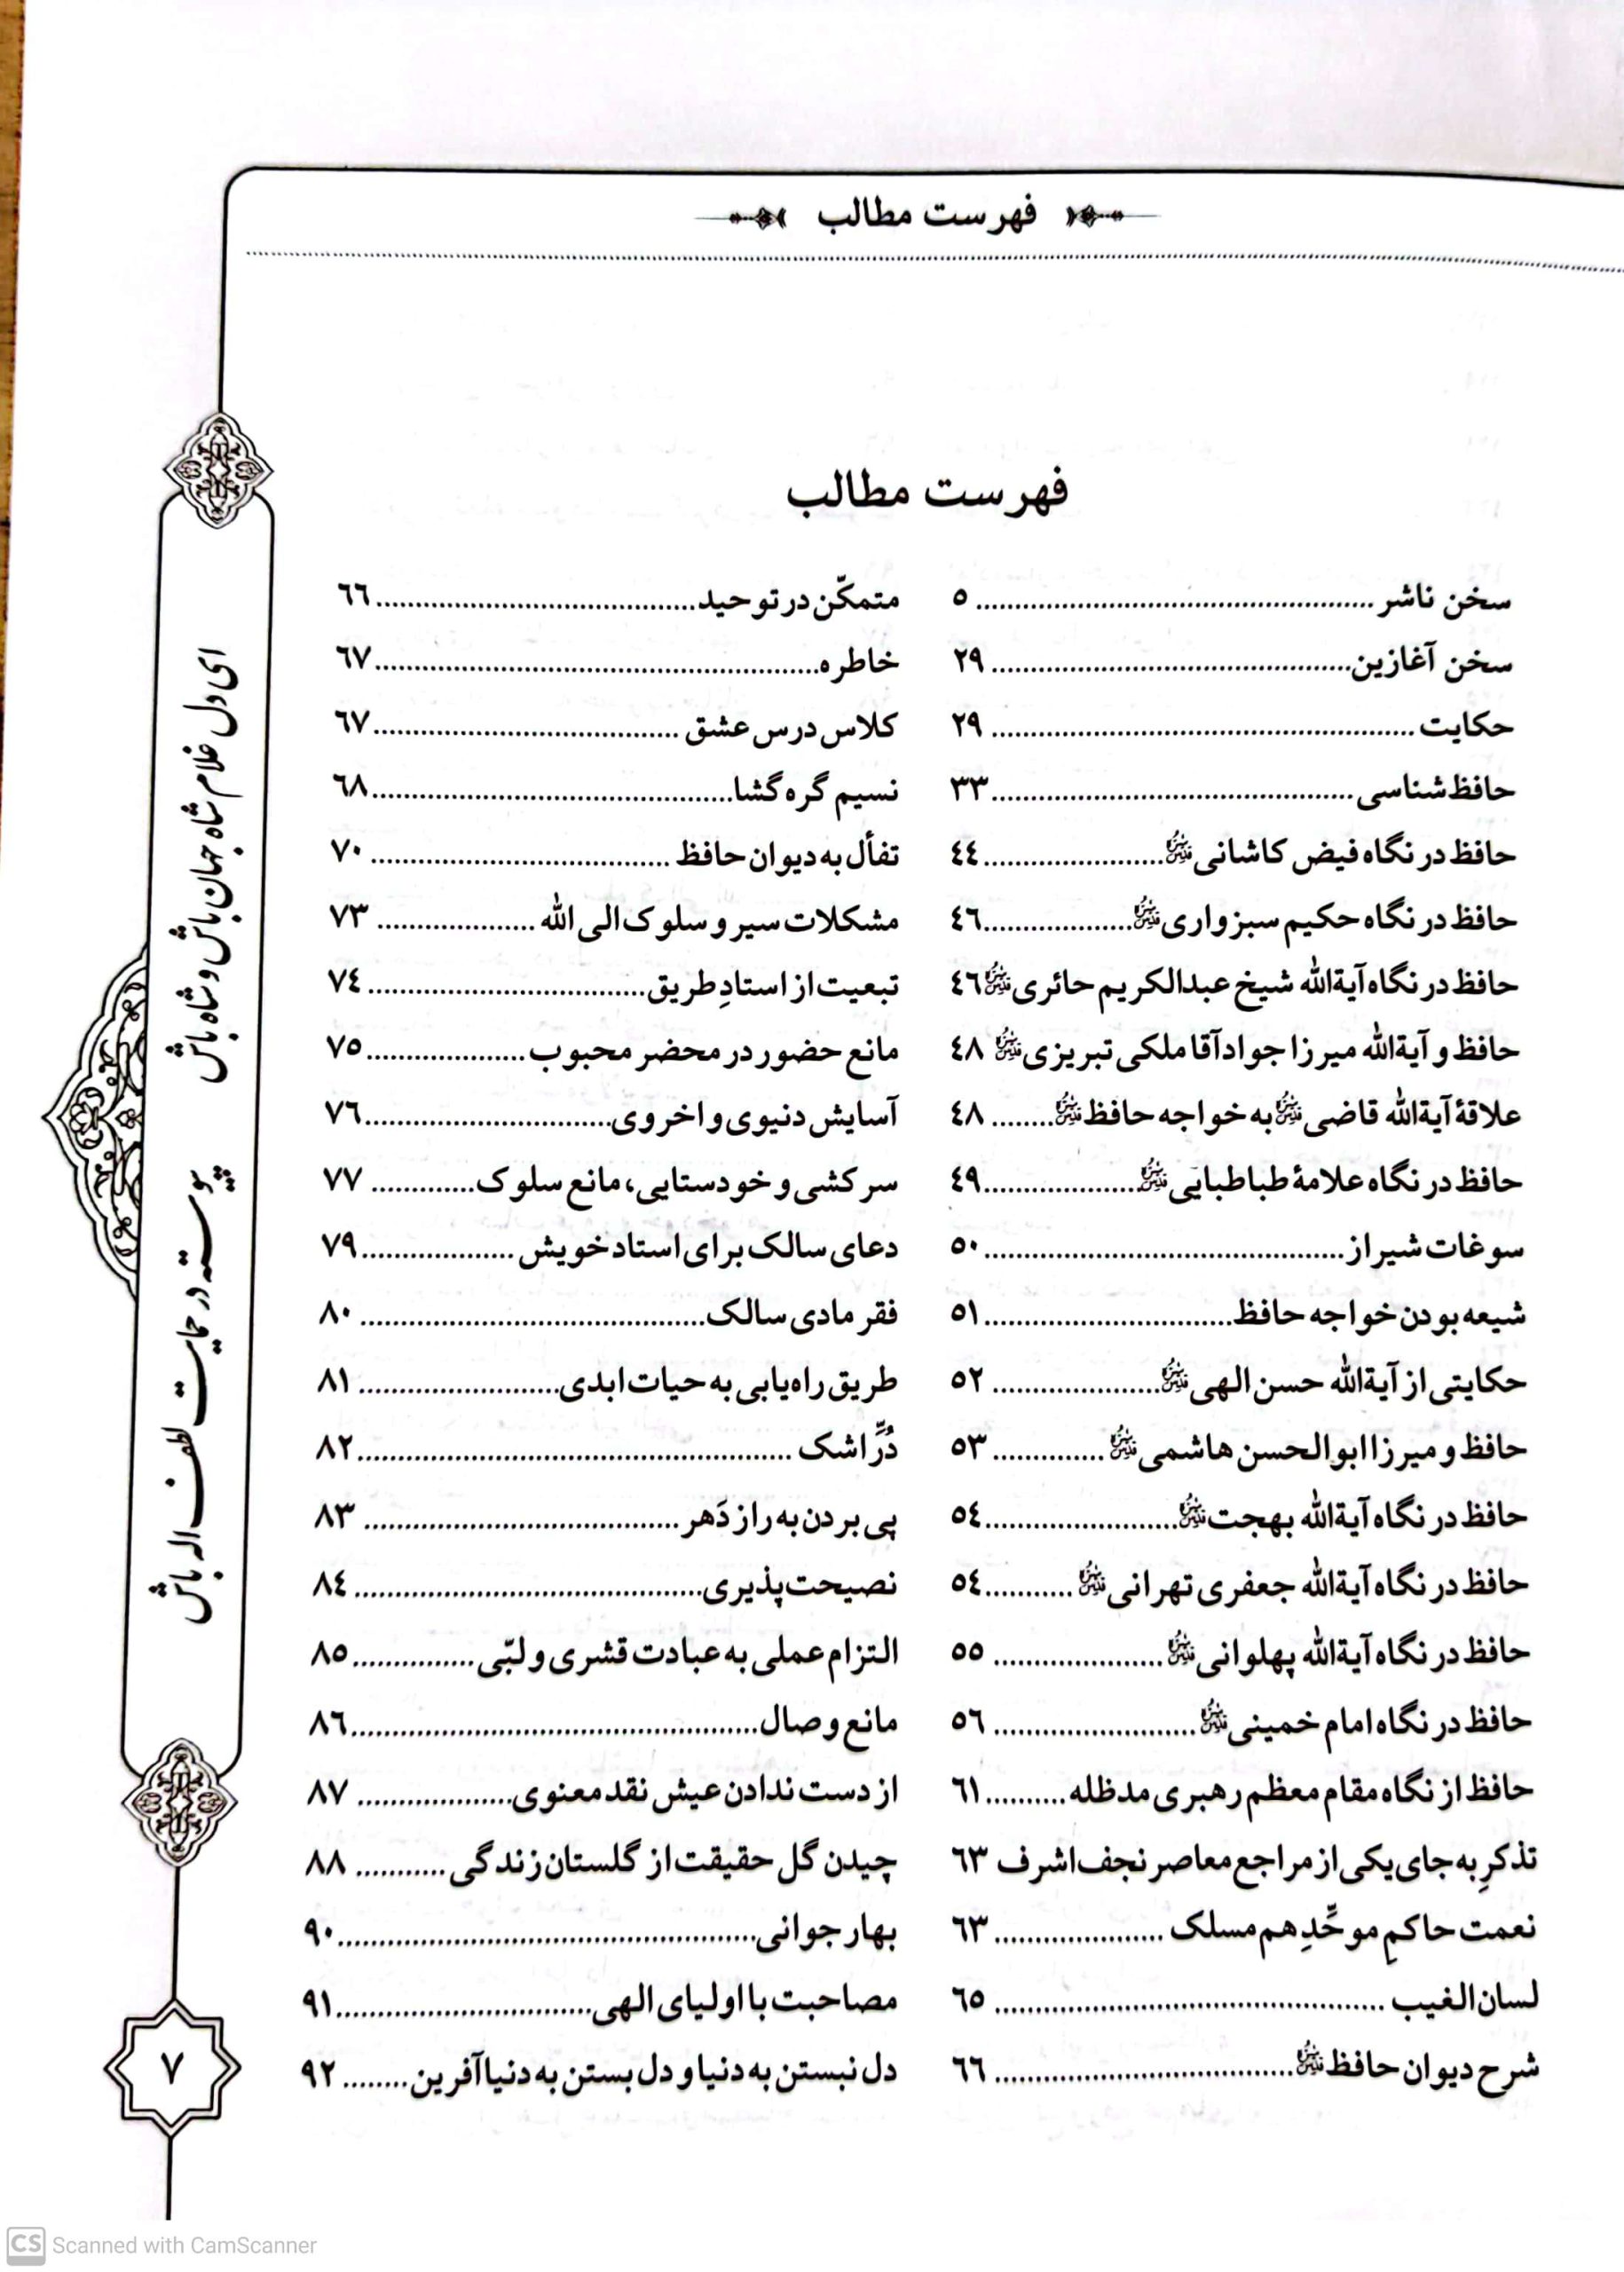 فهرست مطالب
فهرست مطالب
سخن ناشر .................................................. ٥
سخن آغازین .................................................. ٢٩
حکایت .................................................. ٢٩
حافظ‌شناسی .................................................. ٣٣
حافظ در نگاه فیض کاشانی قدس‌سره .................................................. ٤٤
حافظ در نگاه حکیم سبزواری قدس‌سره .................................................. ٤٦
حافظ در نگاه آیةالله شیخ عبدالکریم حائری قدس‌سره ٤٦
حافظ و آیةالله میرزا جواد آقا ملکی تبریزی قدس‌سره ٤٨
علاقهٔ آیةالله قاضی قدس‌سره به خواجه حافظ قدس‌سره ........ ٤٨
حافظ در نگاه علامهٔ طباطبایی قدس‌سره .................... ٤٩
سوغات شیراز .................................................. ٥٠
شیعه بودن خواجه حافظ .............................. ٥١
حکایتی از آیةالله حسن الهی قدس‌سره .................... ٥٢
حافظ و میرزا ابوالحسن هاشمی قدس‌سره .............. ٥٣
حافظ در نگاه آیةالله بهجت قدس‌سره ........................ ٥٤
حافظ در نگاه آیةالله جعفری تهرانی قدس‌سره ........... ٥٤
حافظ در نگاه آیةالله پهلوانی قدس‌سره .................... ٥٥
حافظ در نگاه امام خمینی قدس‌سره ........................ ٥٦
حافظ از نگاه مقام معظم رهبری مدظله .......... ٦١
تذکرِ به جای یکی از مراجع معاصر نجف اشرف ٦٣
نعمت حاکمِ موحِّدِ هم مسلک .................... ٦٣
لسان الغیب .................................................. ٦٥
شرح دیوان حافظ قدس‌سره .................................. ٦٦
متمکّن در توحید .................................................. ٦٦
خاطره .................................................. ٦٧
کلاس درس عشق .................................................. ٦٧
نسیم گره گشا .................................................. ٦٨
تفأل به دیوان حافظ ........................................ ٧٠
مشکلات سیر و سلوک الی الله .................... ٧٣
تبعیت از استادِ طریق .................................... ٧٤
مانع حضور در محضر محبوب .................... ٧٥
آسایش دنیوی و اخروی ................................ ٧٦
سرکشی و خودستایی، مانع سلوک ............. ٧٧
دعای سالک برای استاد خویش .................... ٧٩
فقر مادی سالک .................................................. ٨٠
طریق راه‌یابی به حیات ابدی .......................... ٨١
دُرِّ اشک .................................................. ٨٢
پی بردن به راز دَهر ........................................ ٨٣
نصیحت‌پذیری .................................................. ٨٤
التزام عملی به عبادت قشری و لبّی ............... ٨٥
مانع وصال .................................................. ٨٦
از دست ندادن عیش نقد معنوی .................... ٨٧
چیدن گل حقیقت از گلستان زندگی ........... ٨٨
بهار جوانی .................................................. ٩٠
مصاحبت با اولیای الهی ................................ ٩١
دل نبستن به دنیا و دل بستن به دنیاآفرین ........ ٩٢
ای دل غلام شاه جهان باش و شاه باش
پیوسته در حمایت لطف اله باش
٧
CS Scanned with CamScanner